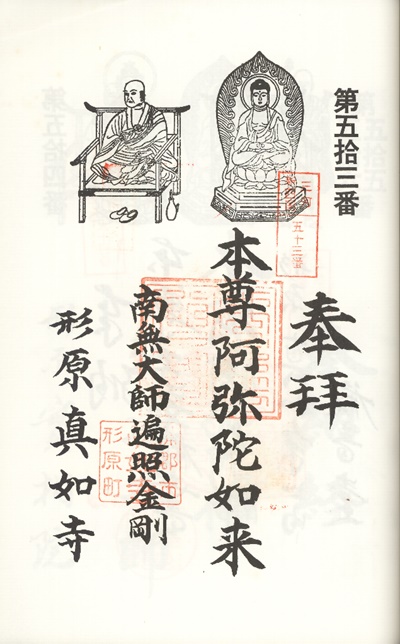 第五拾三番
奉拝
本尊阿弥陀如来
南無大師遍照金剛
形原真如寺
五十三番
形原町